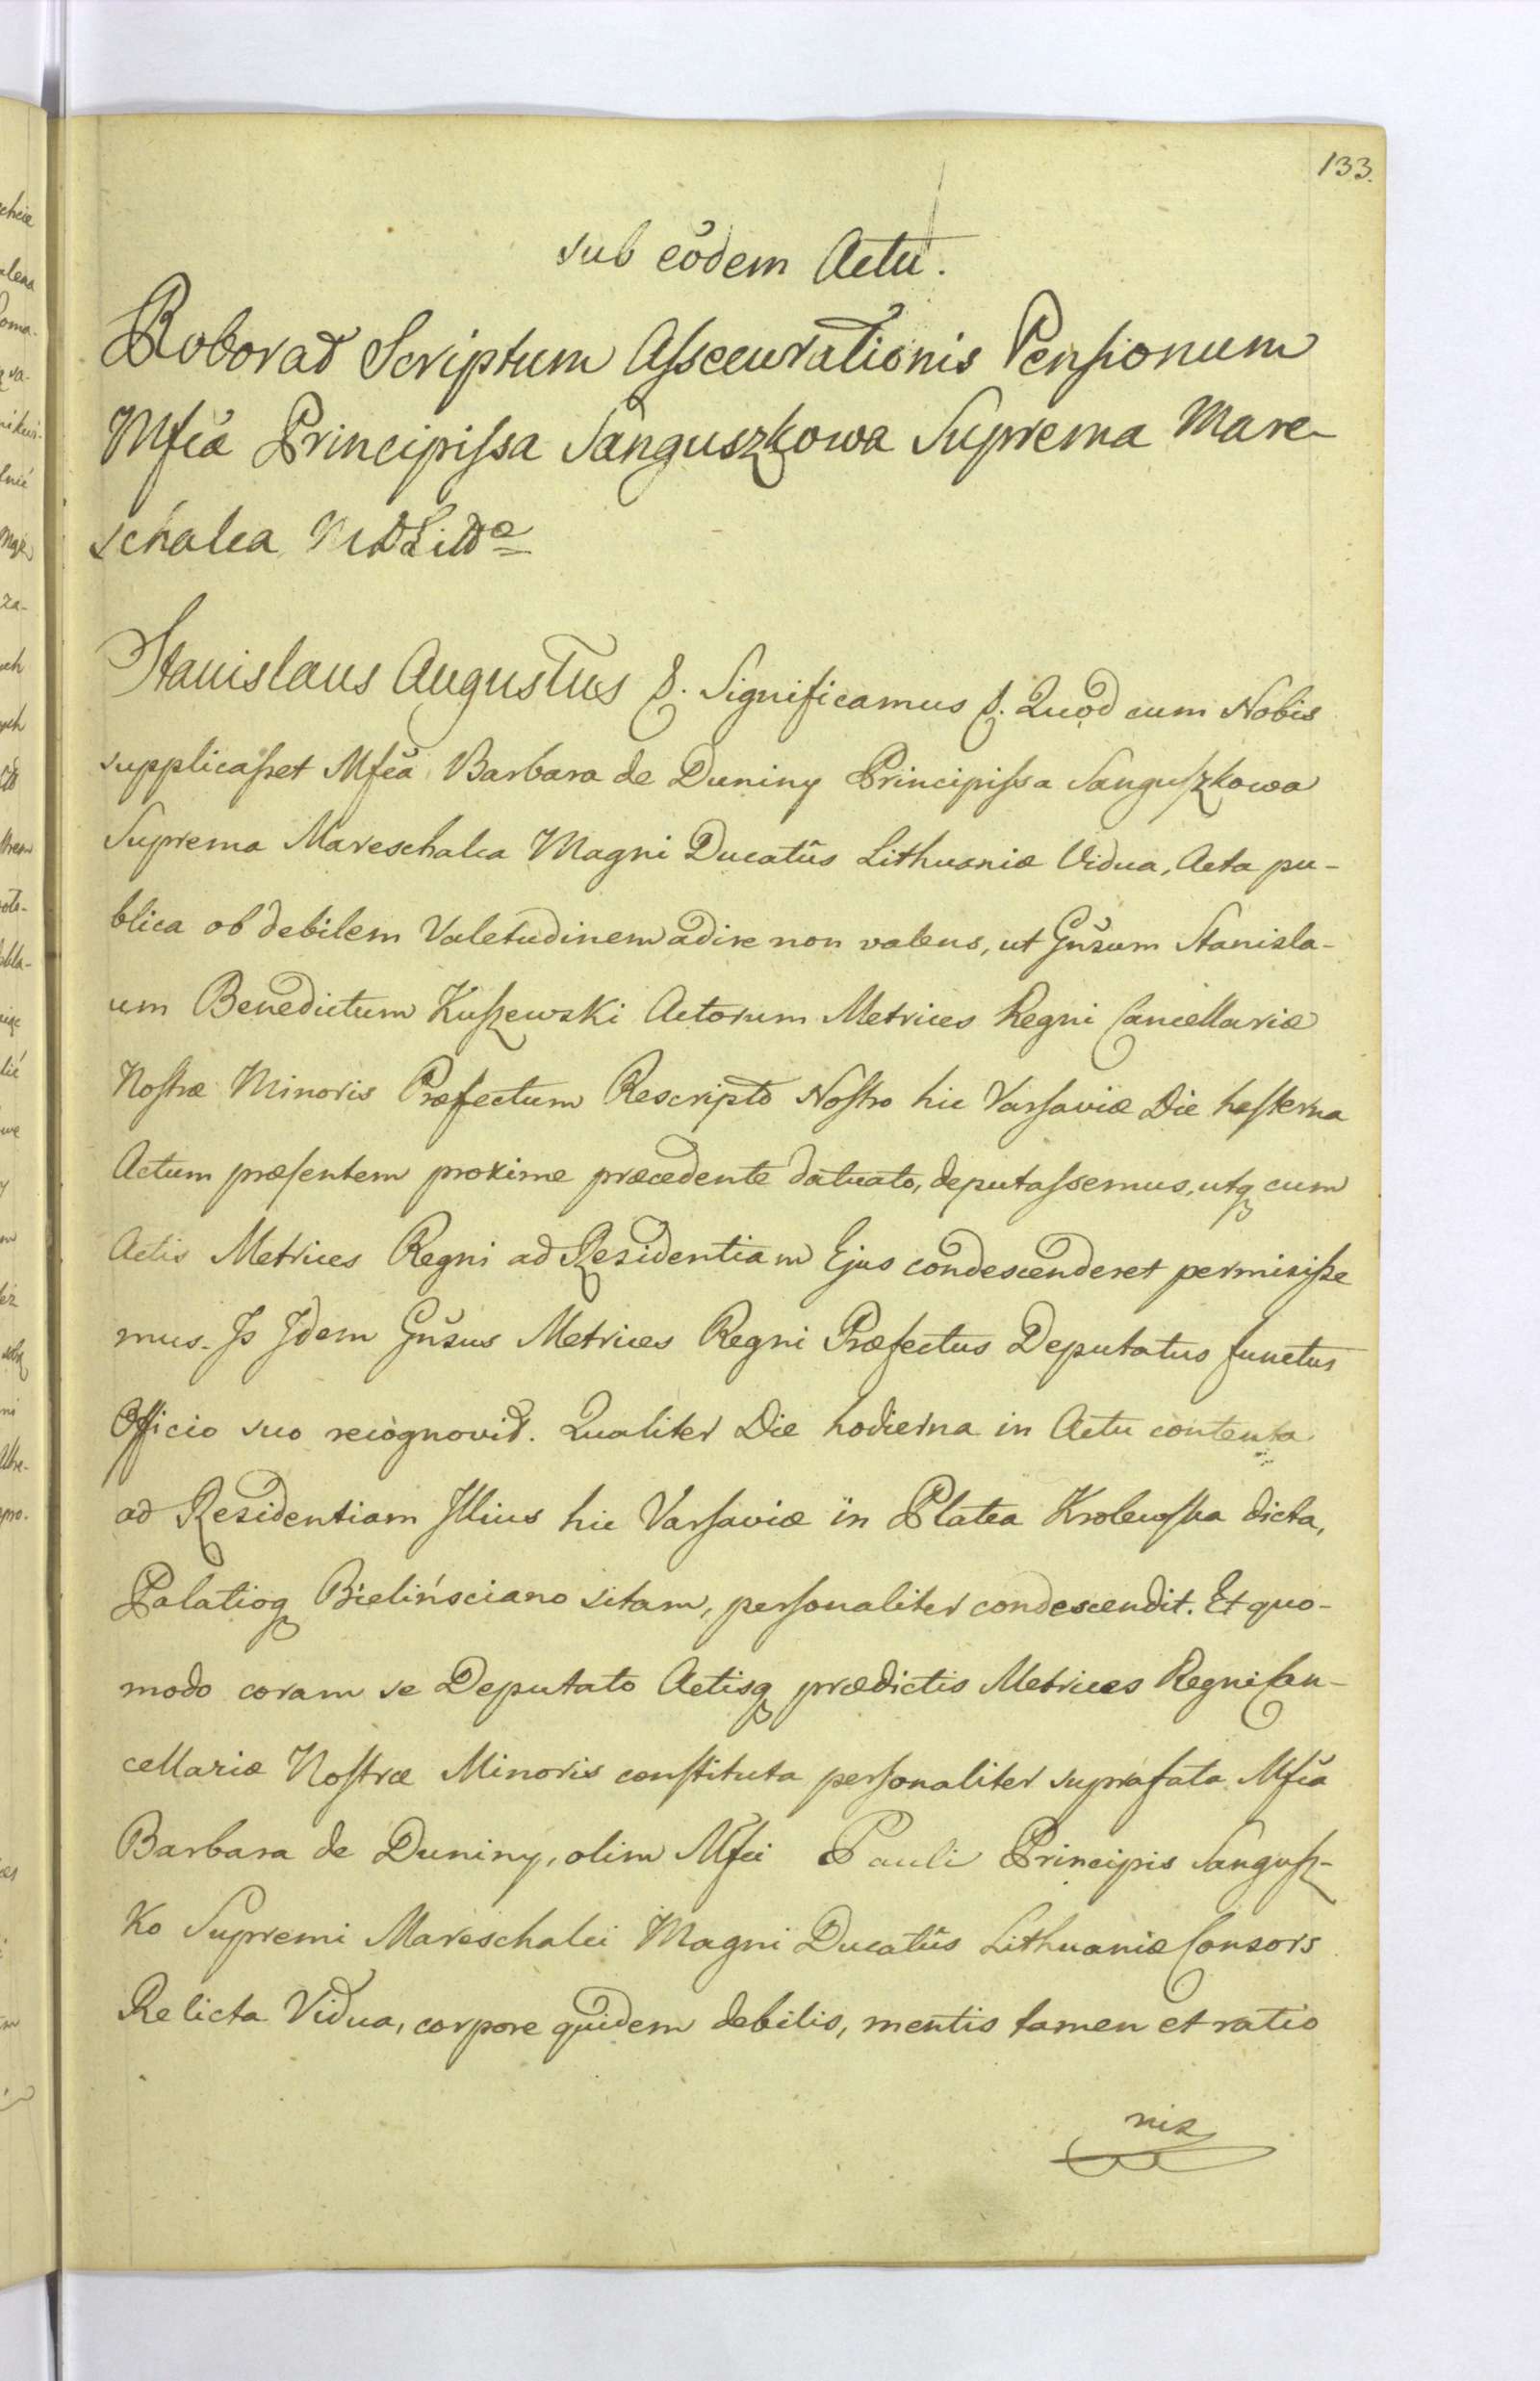 133.
sub eodem Actu.
Roborat Scriptum Assecurationis Pensionum
Mfca Principissa Sanguszkowa Suprema Mare-
schalca
Stanislaus Augustus &. Significamus &. Quod cum Nobis
supplicasset Mfca Barbara de Duniny Principissa Sanguszkowa
Suprema Mareschalca Magni Ducatûs Lithuaniæ Vidua, Acta pu-
blica ob debilem Valetudinem adire non valens, ut Gnsum Stanisla-
um Benedictum Kuszewski Actorum Metrices Regni Cancellariæ
Nostræ Minoris Præfectum Rescripto Nostro hic Varsaviæ Die hesterna
Actum præsentem proxime præcedente datuato, deputassemus, utq cum
Actis Metrices Regni ad Residentiam Ejus condescenderet permisisse
mus. Is Idem Gnsus Metrices Regni Præfectus Deputatus functus
Officio suo recognovit. Qualiter Die hodierna in Actu contenta
ad Residentiam Illius hic Varsaviæ in Platea Krolewska dicta,
Palatioq Bielińsciano sitam, personaliter condescendit. Et quo-
modo coram se Deputato Actisq prædictis Metrices Regni Can-
cellariæ Nostræ Minoris constituta personaliter suprafata Mfca
Barbara de Duniny, olim Mfci Pauli Principis Sangusz-
ko Supremi Mareschalci Magni Ducatûs Lithuaniæ Consors
Relicta Vidua, corpore quidem debilis, mentis tamen et ratio
nis